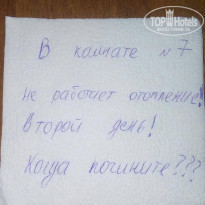 TOP HOTELS
В комнате № 7
не работает отопление!
Второй день!
Когда почините???